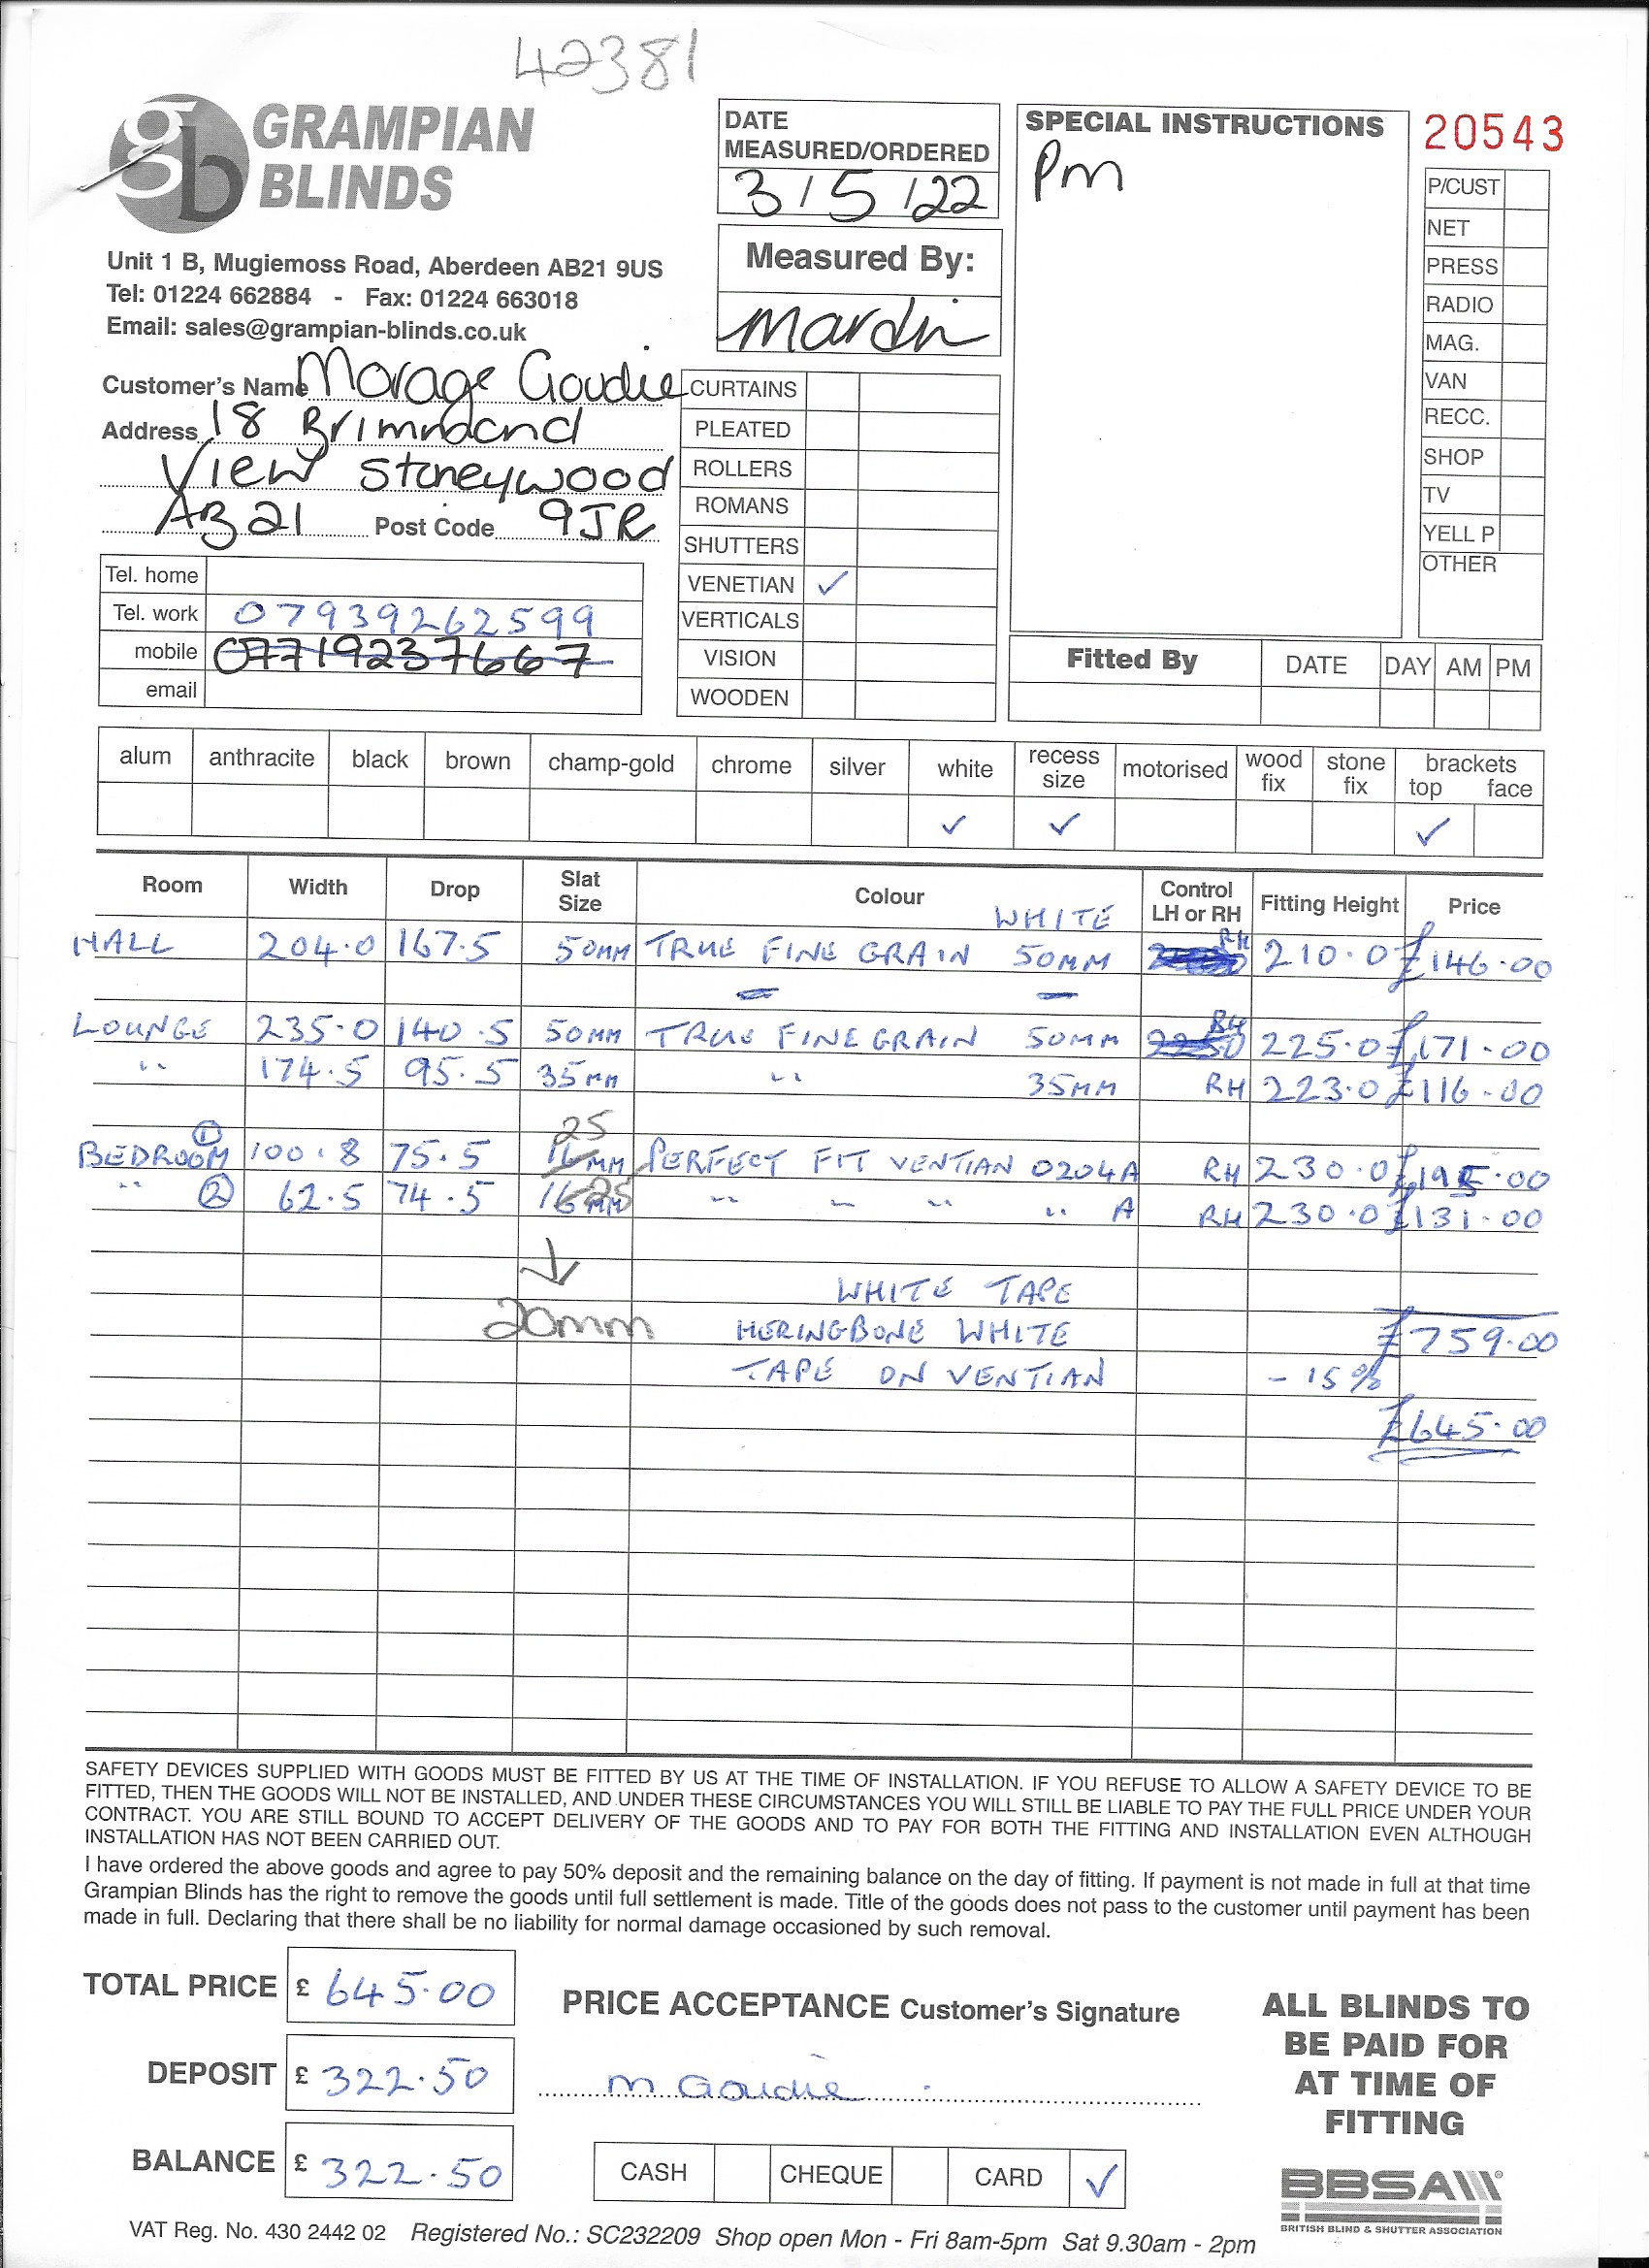 42381
GRAMPIAN
BLINDS
Unit 1 B, Mugiemoss Road, Aberdeen AB21 9US
Tel: 01224 662884 - Fax: 01224 663018
Email: sales@grampian-blinds.co.uk
DATE
MEASURED/ORDERED
3/5/22
Measured By:
SPECIAL INSTRUCTIONS
Pm
20543
P/CUST
NET
PRESS
RADIO
MAG.
VAN
RECC.
SHOP
TV
YELL P
OTHER
Customer's Name Morage Goudie
Address 18 Brimmond
View Stoneywood
AB21 Post Code 9JR
Tel. home
Tel. work 07939262599
mobile 07719237667
email
CURTAINS
PLEATED
ROLLERS
ROMANS
SHUTTERS
VENETIAN ✓
VERTICALS
VISION
WOODEN
Fitted By DATE DAY AM PM
alum anthracite black brown champ-gold chrome silver white recess size motorised wood fix stone fix brackets top face
✓ ✓ ✓
Room Width Drop Slat Size Colour Control LH or RH Fitting Height Price
WHITE
HALL 204.0 167.5 50MM TRUE FINE GRAIN 50MM RH 210.0 £146.00
LOUNGE 235.0 140.5 50MM TRUE FINE GRAIN 50MM RH 225.0 £171.00
" 174.5 95.5 35MM " 35MM RH 223.0 £116.00
25
BEDROOM ① 100.8 75.5 16MM PERFECT FIT VENTIAN 0204A RH 230.0 £195.00
" ② 62.5 74.5 16MM 25 " " " " A RH 230.0 £131.00
↓
20mm
WHITE TAPE
HERINGBONE WHITE £759.00
TAPE ON VENTIAN - 15%
£645.00
SAFETY DEVICES SUPPLIED WITH GOODS MUST BE FITTED BY US AT THE TIME OF INSTALLATION. IF YOU REFUSE TO ALLOW A SAFETY DEVICE TO BE
FITTED, THEN THE GOODS WILL NOT BE INSTALLED, AND UNDER THESE CIRCUMSTANCES YOU WILL STILL BE LIABLE TO PAY THE FULL PRICE UNDER YOUR
CONTRACT. YOU ARE STILL BOUND TO ACCEPT DELIVERY OF THE GOODS AND TO PAY FOR BOTH THE FITTING AND INSTALLATION EVEN ALTHOUGH
INSTALLATION HAS NOT BEEN CARRIED OUT.
I have ordered the above goods and agree to pay 50% deposit and the remaining balance on the day of fitting. If payment is not made in full at that time
Grampian Blinds has the right to remove the goods until full settlement is made. Title of the goods does not pass to the customer until payment has been
made in full. Declaring that there shall be no liability for normal damage occasioned by such removal.
TOTAL PRICE £ 645.00
DEPOSIT £ 322.50
BALANCE £ 322.50
PRICE ACCEPTANCE Customer's Signature
M Goudie
CASH CHEQUE CARD ✓
ALL BLINDS TO
BE PAID FOR
AT TIME OF
FITTING
BBSA
BRITISH BLIND & SHUTTER ASSOCIATION
VAT Reg. No. 430 2442 02 Registered No.: SC232209 Shop open Mon - Fri 8am-5pm Sat 9.30am - 2pm